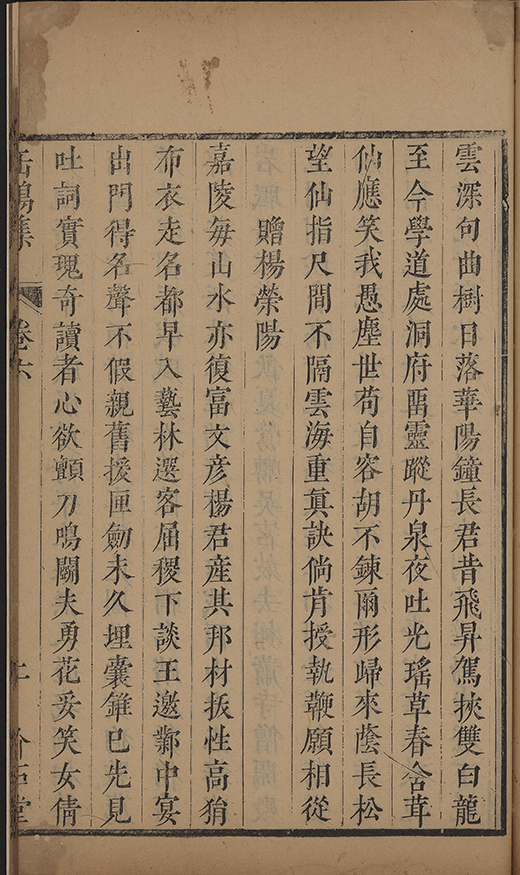 雲深句曲樹日落華陽鐘長君昔飛昇駕挾雙白龍
至今學道處洞府畱靈蹤丹泉夜吐光瑤草春含茸
仙應笑我愚塵世苟自容胡不鍊爾形歸來蔭長松
望仙指尺間不隔雲海重眞訣倘肯授執鞭願相從
贈楊榮陽
嘉陵毎山水亦復富文彦楊君産其邦材扳性高狷
布衣走名都早入藝林選客屈稷下談王邀鄴中宴
出門得名聲不假親舊援匣劒未久埋囊錐已先見
吐詞實瑰奇讀者心欲顫刀鳴鬭夫勇花妥笑女倩
缶鳴集 卷六